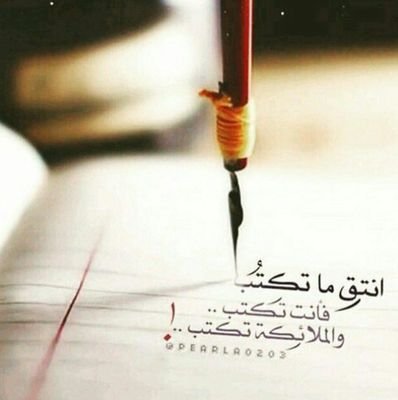 انتق ما تكتُب
فأنت تكتب ..
والملائكة تكتب .. !
@PEARLA0203